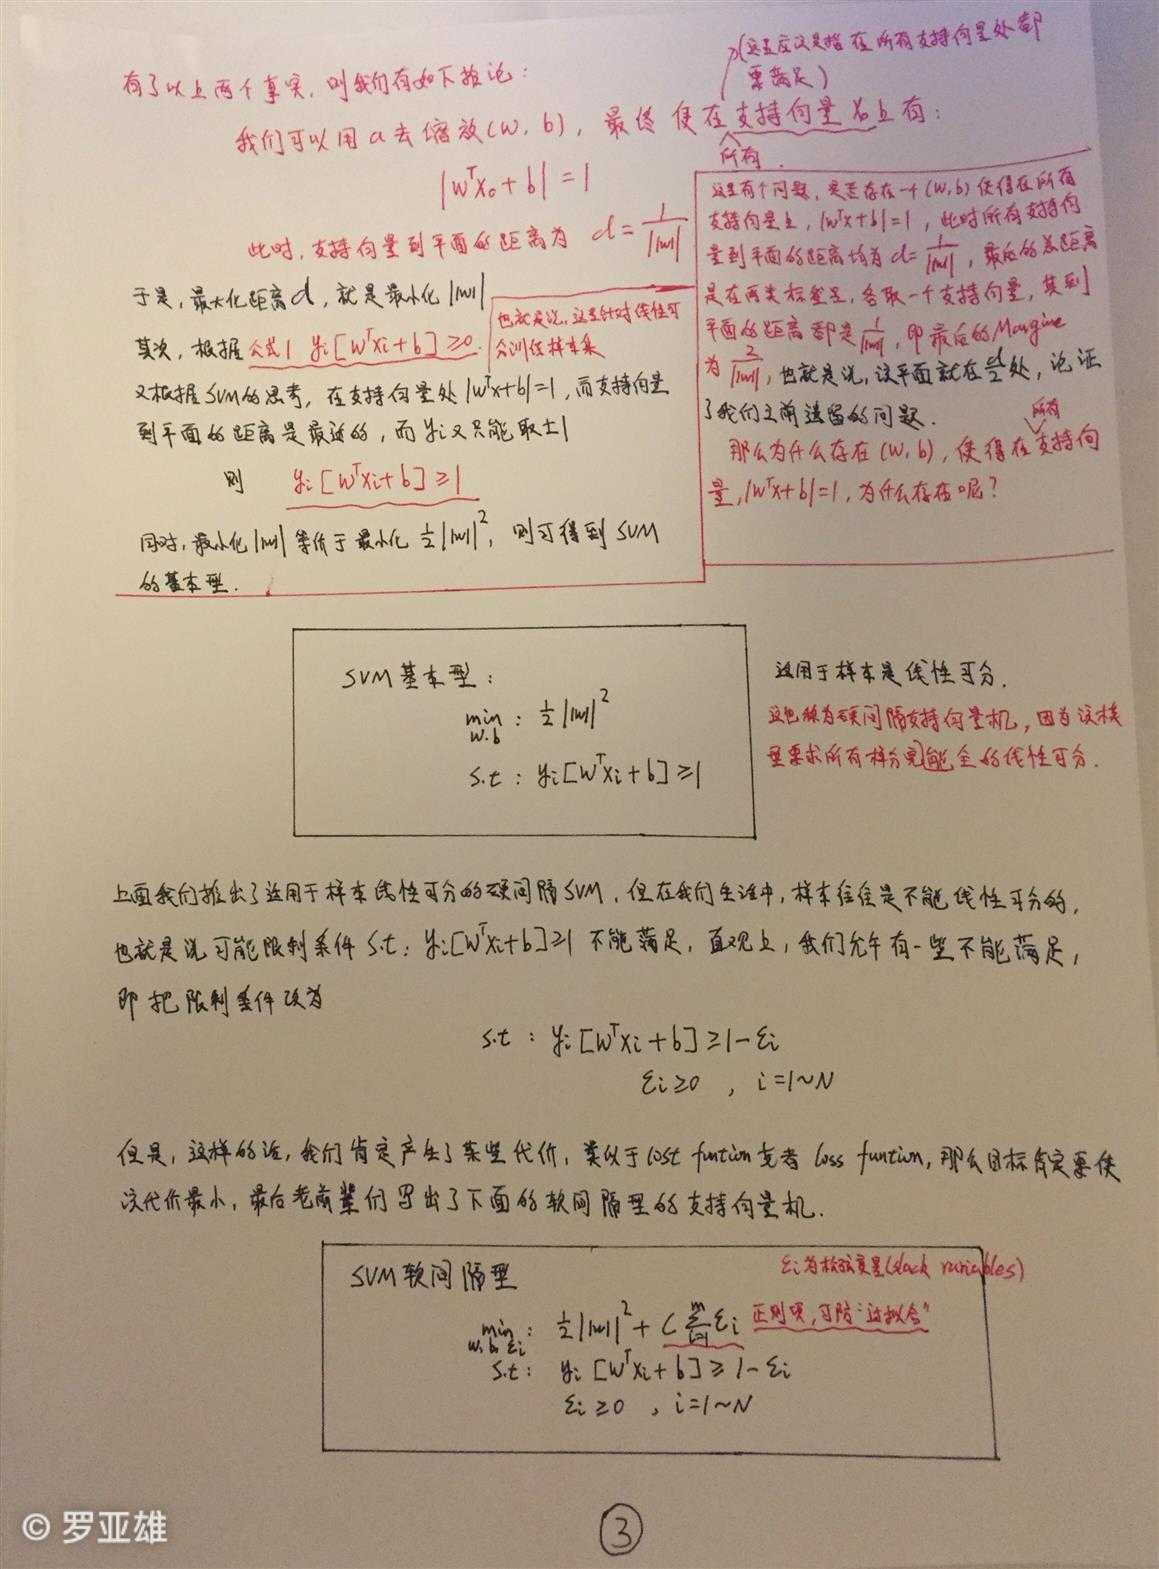 (这里应该是指在所有支持向量处都
要满足)
有了以上两个事实,则我们有如下推论:
我们可以用a去缩放(w,b),最终使在支持向量x₀上有:
所有.
|wᵀx₀+b|=1
此时,支持向量到平面的距离为 d=1/||w||
于是,最大化距离d,就是最小化||w||
其次,根据公式1 yi[wᵀxi+b]≥0.
也就是说,这是针对线性可
分训练样本集
又根据SVM的思考,在支持向量处|wᵀx+b|=1,而支持向量
到平面的距离是最近的,而yi又只能取±1
则 yi[wᵀxi+b]≥1
同时,最小化||w||等价于最小化 ½||w||²,则可得到SVM
的基本型.
这里有个问题,是否存在一个(w,b)使得在所有
支持向量上,|wᵀx+b|=1,此时所有支持向
量到平面的距离均为d=1/||w||,最后的总距离
是在两类标签里,各取一个支持向量,其到
平面的距离都是1/||w||,即最后的Margine
为2/||w||,也就是说,该平面就在d/2处,论证
了我们之前遗留的问题.
所有
那么为什么存在(w,b),使得在支持向
量,|wᵀx+b|=1,为什么存在呢?
SVM基本型:
min w.b : ½||w||²
s.t : yi[wᵀxi+b]≥1
适用于样本是线性可分.
这也称为硬间隔支持向量机,因为该模
型要求所有样分完能全的线性可分.
上面我们推出了适用于样本线性可分的硬间隔SVM,但在我们生活中,样本往往是不能线性可分的,
也就是说可能限制条件 s.t: yi[wᵀxi+b]≥1 不能满足,直观上,我们允许有一些不能满足,
即把限制条件改为
s.t : yi[wᵀxi+b]≥1-εi
εi≥0 , i=1~N
但是,这样的话,我们肯定产生了某些代价,类似于cost funtion或者 loss funtion,那么目标肯定要使
该代价最小,最后老前辈们写出了下面的软间隔型的支持向量机.
SVM软间隔型
εi为松弛变量(slack variables)
min w.b.εi : ½||w||²+C∑ᵐᵢ₌₁εi 正则项,可防"过拟合"
s.t : yi[wᵀxi+b]≥1-εi
εi≥0 , i=1~N
© 罗亚雄
③